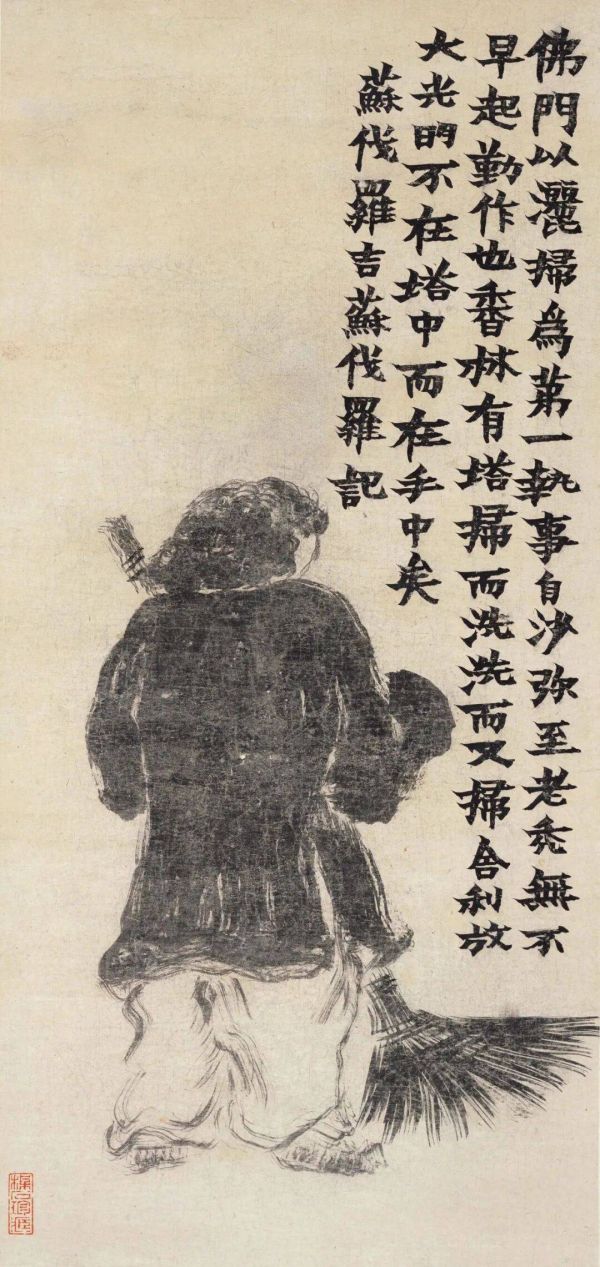 佛門以灑掃爲第一執事自沙弥至老禿無不
早起勤作也香林有塔掃而洗洗而又掃舍利放
大光明不在塔中而在手中矣
蘇伐羅吉蘇伐羅記